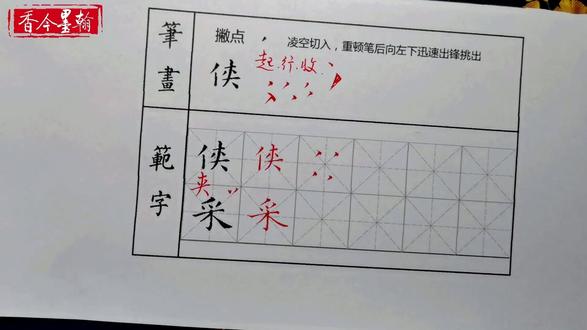 香今墨翰
筆畫
撇点 ， 凌空切入，重顿笔后向左下迅速出锋挑出
侠 起.行.收
範字
侠 侠
夹
采 采